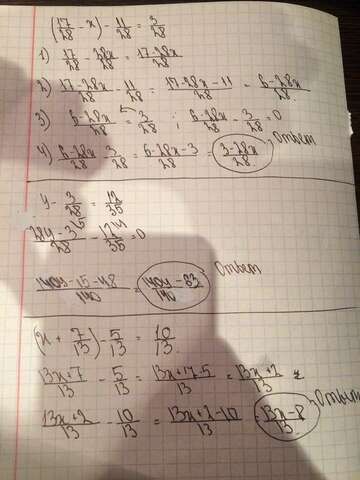 (17/28 - x) - 11/28 = 3/28
1) 17/28 - 28x/28 = 17-28x/28
2) 17-28x/28 - 11/28 = 17-28x-11/28 = 6-28x/28
3) 6-28x/28 = 3/28 ; 6-28x/28 - 3/28 = 0
4) 6-28x/28 - 3/28 = 6-28x-3/28 = 3-28x/28 Ответ
y - 3/28 = 12/35
28y-3/28 - 12/35 = 0
140y-15-48/140 = 140y-63/140 Ответ
(x + 7/13) - 5/13 = 10/13
13x+7/13 - 5/13 = 13x+17-5/13 = 13x+2/13 =
13x+2/13 - 10/13 = 13x+2-10/13 = 13x-8/13 Ответ